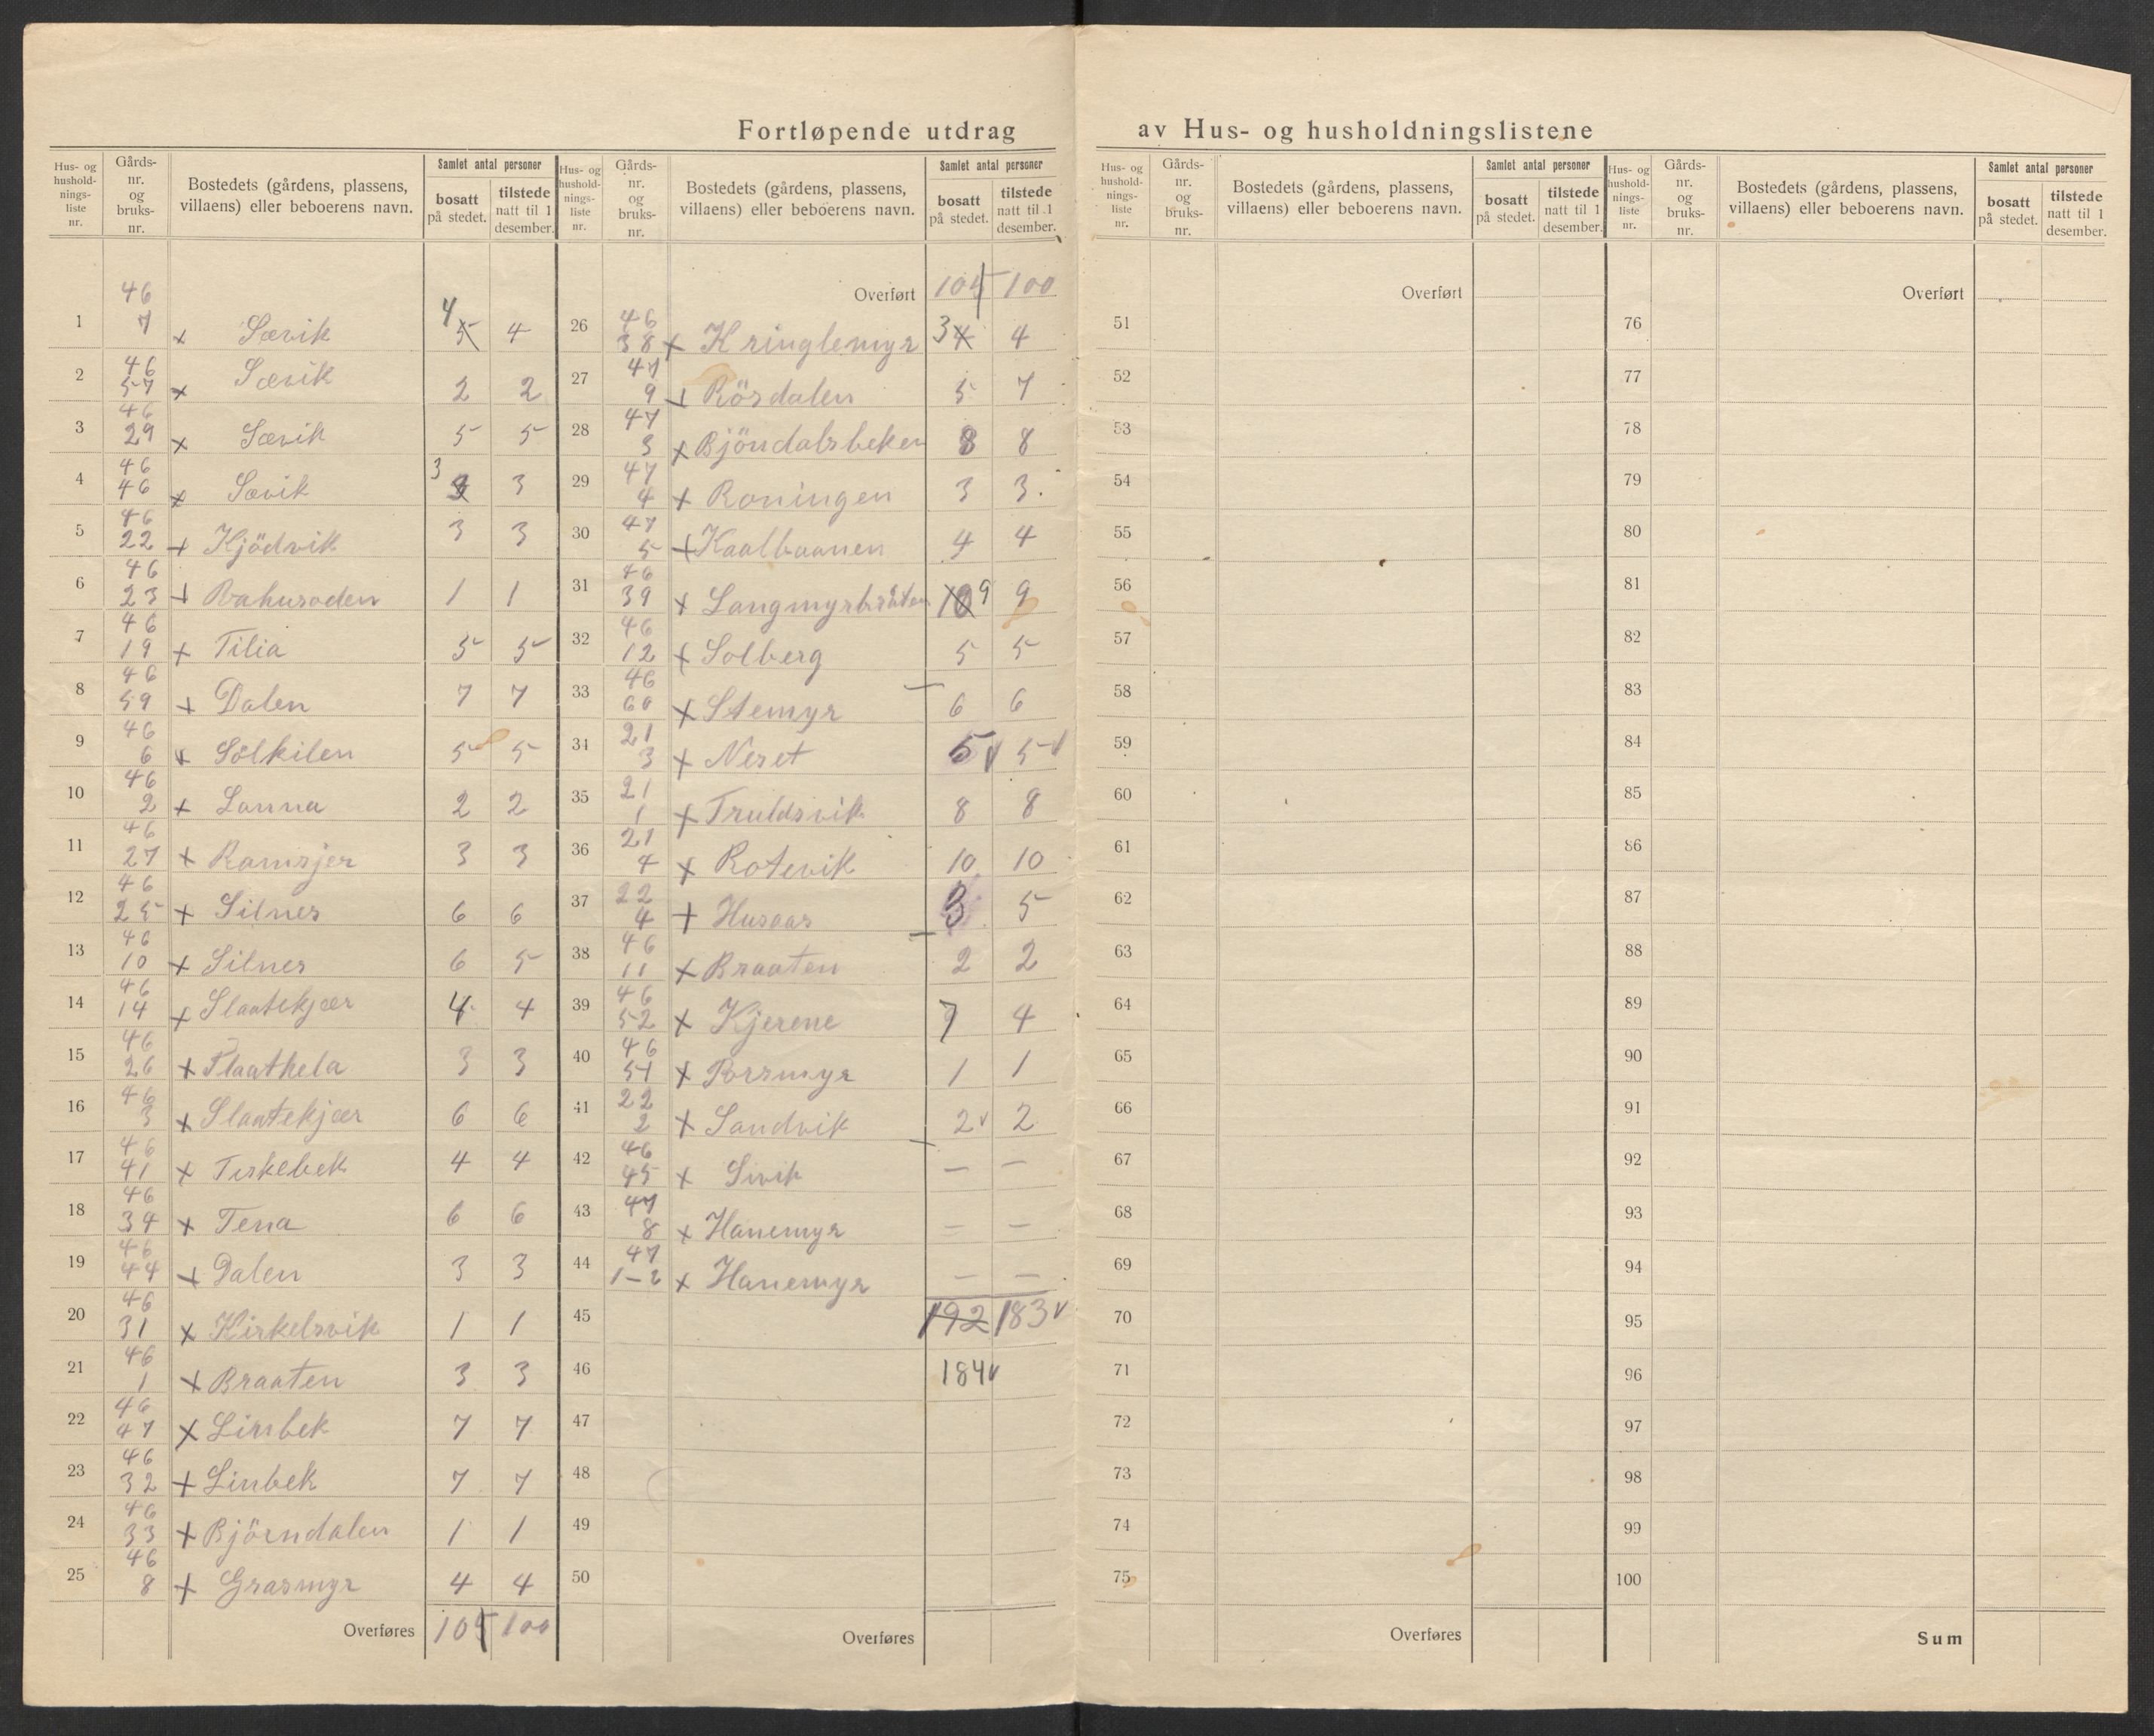 Fortløpende utdrag av Hus- og husholdningslistene
Hus- og hushold-nings-liste nr. | Gårds-nr. og bruks-nr. | Bostedets (gårdens, plassens, villaens) eller beboerens navn. | Samlet antal personer | bosatt på stedet. | tilstede natt til 1 desember.
1 46 7 x Sævik 5 4 4
2 46 57 x Sævik 2 2
3 46 29 x Sævik 5 5
4 46 46 x Sævik 3 3
5 46 22 x Kjödvik 3 3
6 46 23 x 1 1
7 46 19 x Tilia 5 5
8 46 59 x Dalen 7 7
9 46 6 x Sölkilen 5 5
10 46 2 x Lanna 2 2
11 46 27 x Ramsjer 3 3
12 46 25 x Silnes 6 6
13 46 10 x Silnes 6 5
14 46 14 x Slaatekjær 4 4
15 46 26 x Slaathela 3 3
16 46 3 x Slaatekjær 6 6
17 46 41 x Teskebek 4 4
18 46 34 x Tena 6 6
19 46 44 x Dalen 3 3
20 46 31 x Kirkelsvik 1 1
21 46 1 x Braaten 3 3
22 46 47 x Linbek 7 7
23 46 32 x Linbek 7 7
24 46 33 x Björndalen 1 1
25 46 8 x Grasmyr 4 4
Overføres 100
Hus- og hushold-nings-liste nr. | Gårds-nr. og bruks-nr. | Bostedets (gårdens, plassens, villaens) eller beboerens navn. | Samlet antal personer | bosatt på stedet. | tilstede natt til 1 desember.
Overført 100
26 46 38 x Kringlemyr 3 4 4
27 47 9 x Rösdalen 5 7
28 47 3 x Bjöndalsbeken 8 8
29 47 4 x Roningen 3 3.
30 47 5 x Kaalbaanen 4 4
31 46 39 x Langmyrbråten 10 9 9
32 46 12 x Solberg 5 5
33 46 60 x Stemyr 6 6
34 21 3 x Neset 5 v 5 v
35 21 1 x Truldsvik 8 8
36 21 4 x Rotevik 10 10
37 22 4 x Husaas 3 5
38 46 11 x Braaten 2 2
39 46 52 x Kjerene 7 4
40 46 51 x Porsmyr 1 1
41 22 2 x Sandvik 2 v 2
42 46 45 x Sivik — —
43 47 8 x Hanemyr — —
44 47 1-2 x Hanemyr — —
45 192 183 v
46 184 v
47
48
49
50
Overføres
Hus- og hushold-nings-liste nr. | Gårds-nr. og bruks-nr. | Bostedets (gårdens, plassens, villaens) eller beboerens navn. | Samlet antal personer | bosatt på stedet. | tilstede natt til 1 desember.
Overført
51
52
53
54
55
56
57
58
59
60
61
62
63
64
65
66
67
68
69
70
71
72
73
74
75
Overføres
Hus- og hushold-nings-liste nr. | Gårds-nr. og bruks-nr. | Bostedets (gårdens, plassens, villaens) eller beboerens navn. | Samlet antal personer | bosatt på stedet. | tilstede natt til 1 desember.
Overført
76
77
78
79
80
81
82
83
84
85
86
87
88
89
90
91
92
93
94
95
96
97
98
99
100
Sum